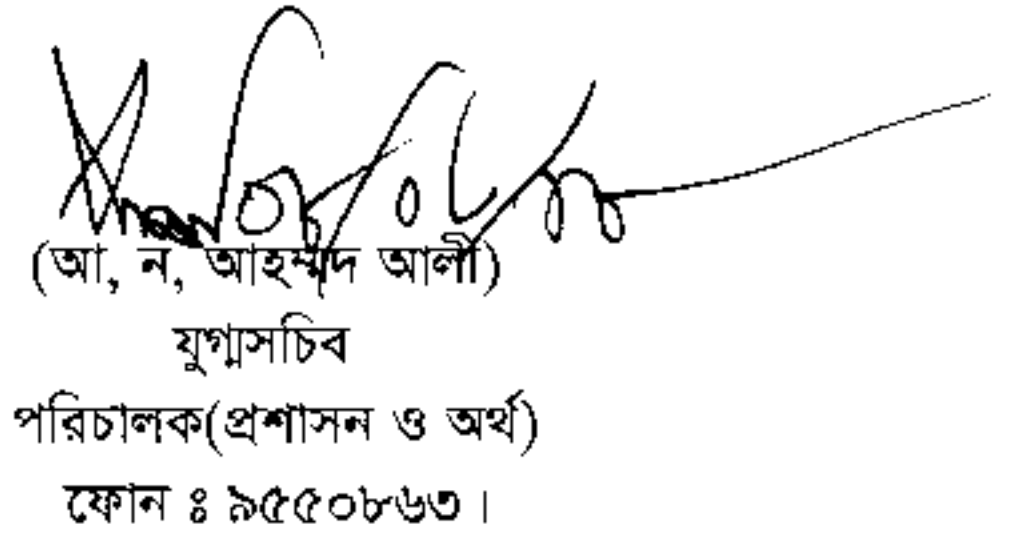 (আ, ন, আহম্মদ আলী)
যুগ্মসচিব
পরিচালক(প্রশাসন ও অর্থ)
ফোন ঃ ৯৫৫০৮৬৩।